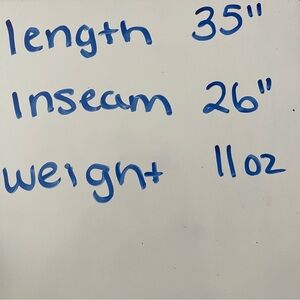 length 35"
Inseam 26"
weight 11oz